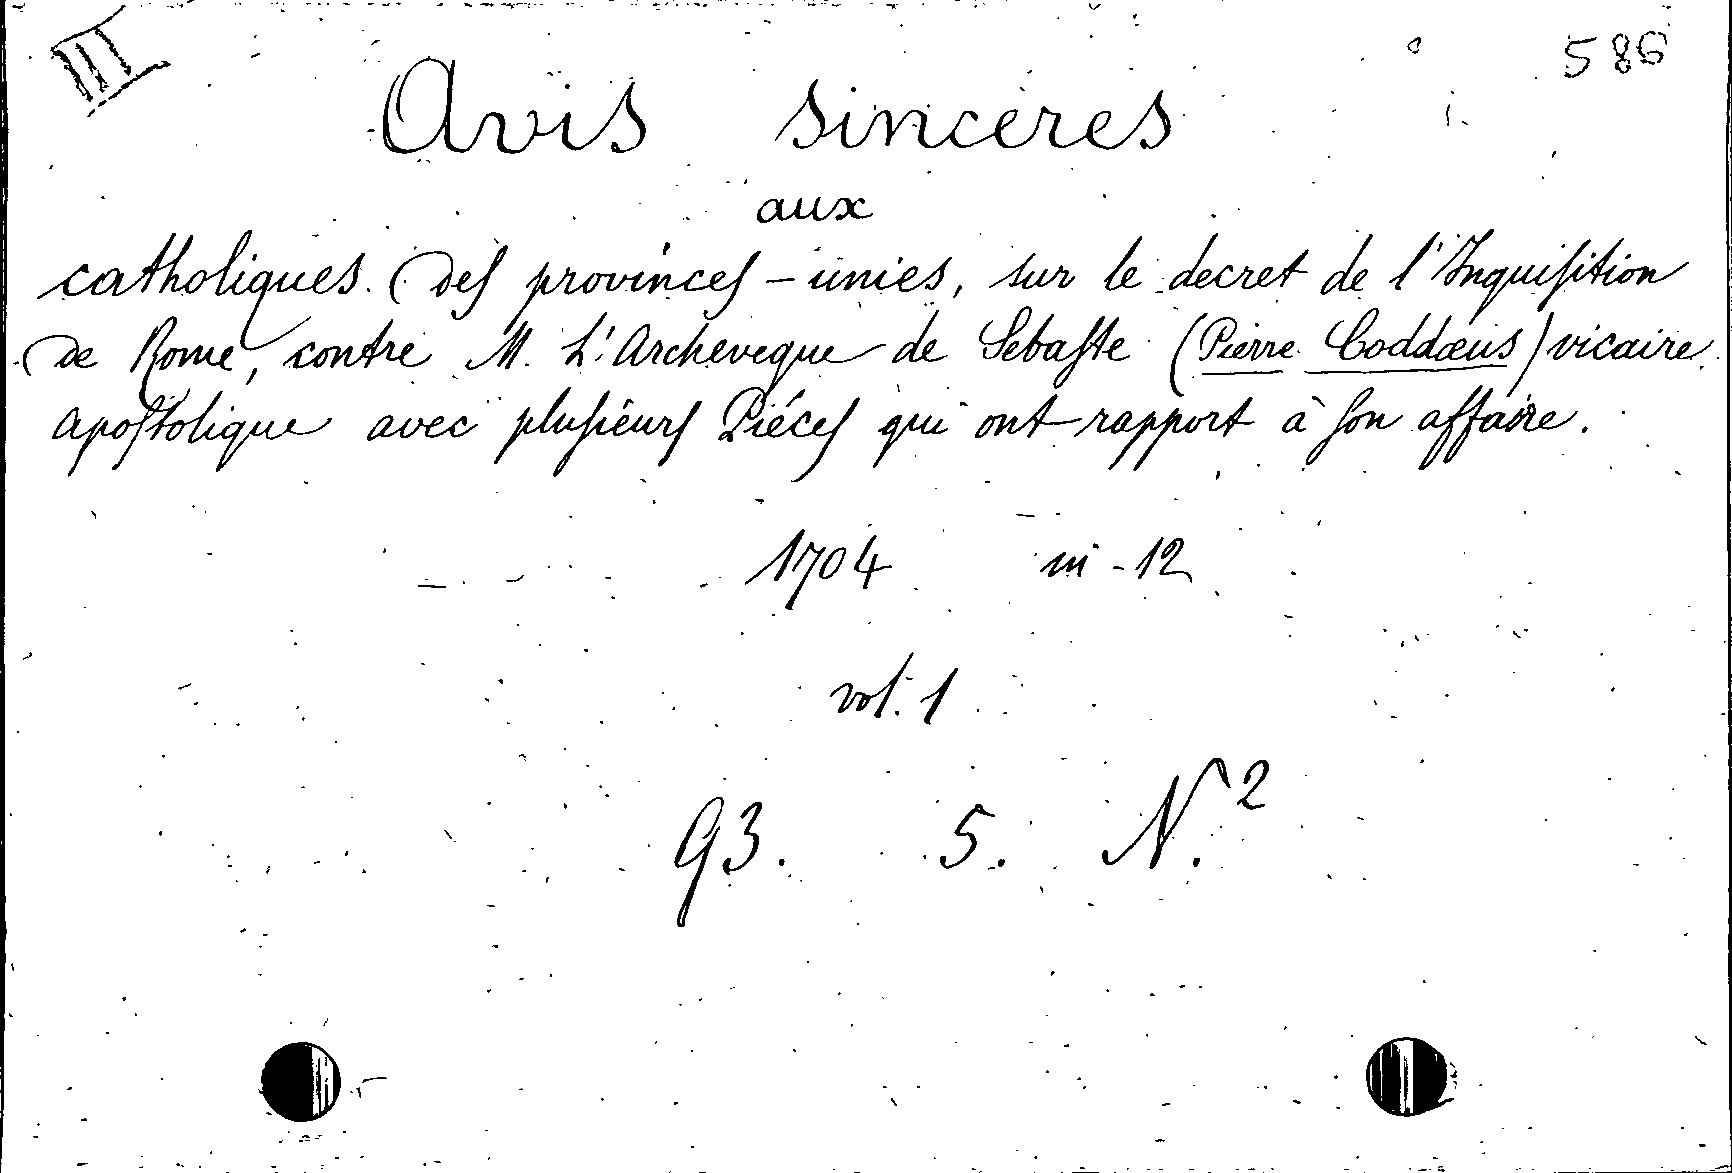 III
586
Avis sinceres
aux
catholiques Des provinces-unies, sur le decret de l'Inquisition
De Rome, contre M. L'Archeveque de Sebaste (Pierre Coddæus) vicaire
apostolique avec plusieurs Piéces qui ont rapport à son affaire.
1704 in-12
vol. 1
93. 5. N.2